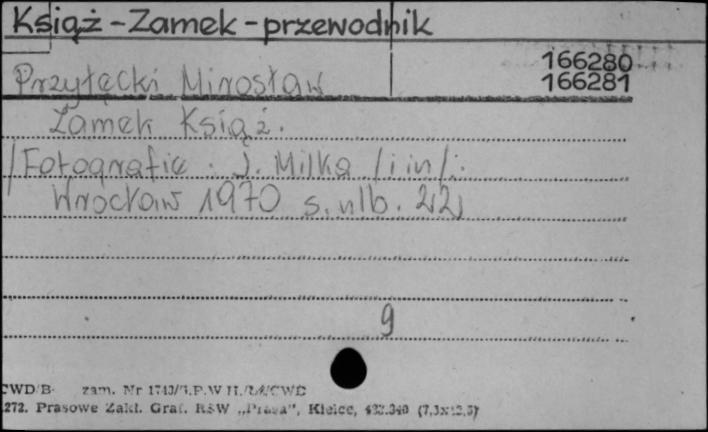 Książ - Zamek - przewodnik
166280
Przyłęcki Mirosław 166281
Zamek Książ.
/Fotografie: J. Milka /i in/:
Wrocław 1970 s. nlb. 22
9
CWD/B- zam. Nr
272. Prasowe Zakł. Graf. RSW „Prasa", Kielce,